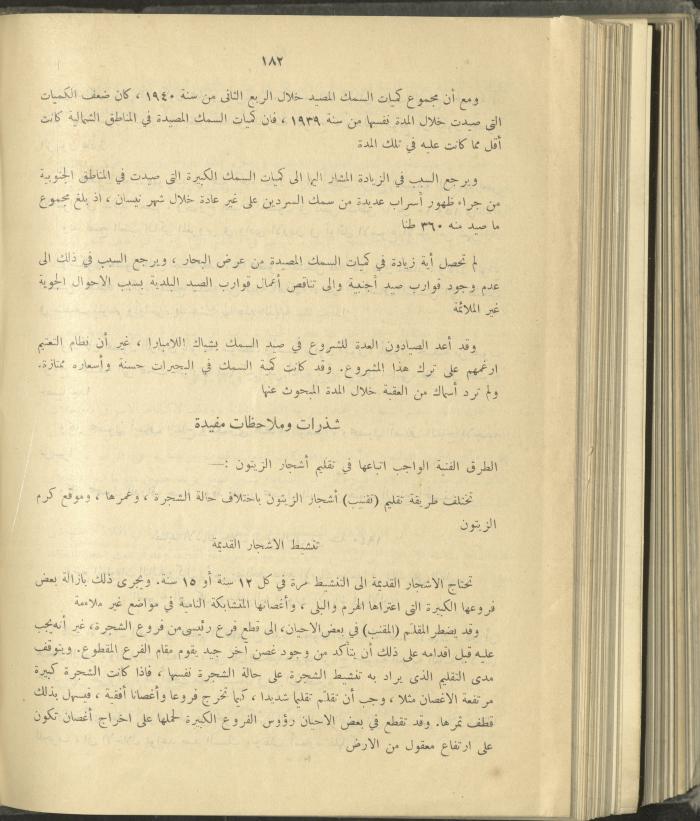 ١٨٢
ومع أن مجموع كميات السمك المصيد خلال الربع الثانى من سنة ١٩٤٠ ، كان ضعف الكميات
التى صيدت خلال المدة نفسها من سنة ١٩٣٩ ، فان كميات السمك المصيدة في المناطق الشمالية كانت
أقل مما كانت عليه في تلك المدة
ويرجع السبب في الزيادة المشار اليها الى كميات السمك الكبيرة التى صيدت في المناطق الجنوبية
من جراء ظهور أسراب عديدة من سمك السردين على غير عادة خلال شهر نيسان ، اذ بلغ مجموع
ما صيد منه ٣٦٠ طنا
لم تحصل أية زيادة في كميات السمك المصيدة من عرض البحار ، ويرجع السبب في ذلك الى
عدم وجود قوارب صيد أجنبية والى تناقص أعمال قوارب الصيد البلدية بسبب الاحوال الجوية
غير الملائمة
وقد أعد الصيادون العدة للشروع في صيد السمك بشباك اللامبارا ، غير أن نظام التعتيم
ارغمهم على ترك هذا المشروع. وقد كانت كمية السمك في البحيرات حسنة وأسعاره ممتازة.
ولم ترد أسماك من العقبة خلال المدة المبحوث عنها
شذرات وملاحظات مفيدة
الطرق الفنية الواجب اتباعها في تقليم أشجار الزيتون :—
تختلف طريقة تقليم (تقنيب) أشجار الزيتون باختلاف حالة الشجرة ، وعمرها ، وموقع كرم
الزيتون
تنشيط الاشجار القديمة
تحتاج الاشجار القديمة الى التنشيط مرة في كل ١٢ سنة أو ١٥ سنة. ويجرى ذلك بازالة بعض
فروعها الكبيرة التى اعتراها الهرم والبلى ، وأغصانها المتشابكة النامية في مواضع غير ملائمة
وقد يضطر المقلم (المقنب) في بعض الاحيان، الى قطع فرع رئيسى من فروع الشجرة، غير أنه يجب
عليه قبل اقدامه على ذلك أن يتأكد من وجود غصن آخر جيد يقوم مقام الفرع المقطوع. ويتوقف
مدى التقليم الذى يراد به تنشيط الشجرة على حالة الشجرة نفسها ، فاذا كانت الشجرة كبيرة
مرتفعة الاغصان مثلا ، وجب أن تقلم تقليما شديدا ، كيما تخرج فروعا وأغصانا أفقية ، فيسهل بذلك
قطف ثمرها. وقد تقطع في بعض الاحيان رؤوس الفروع الكبيرة لحملها على اخراج أغصان تكون
على ارتفاع معقول من الارض